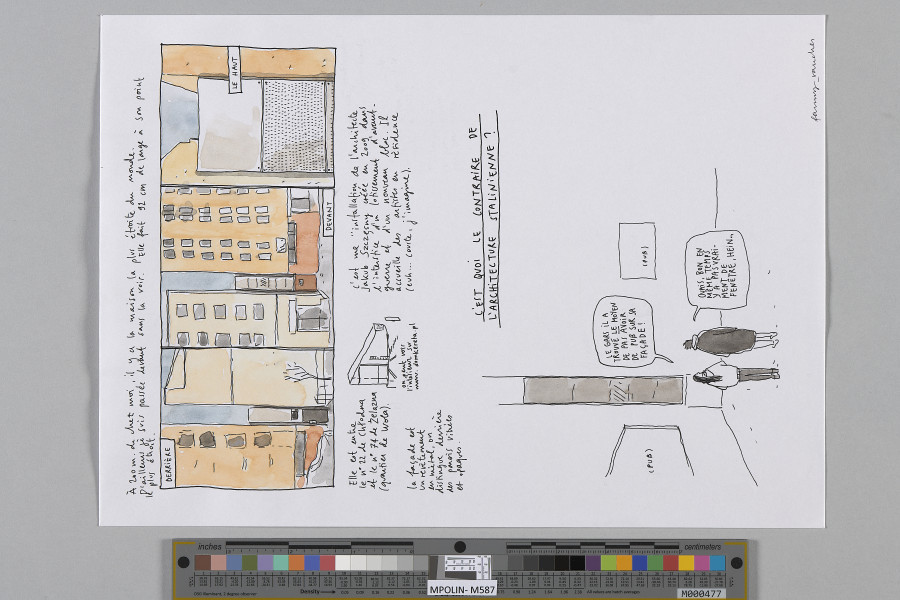 À 200 m. de chez moi, il y a la maison la plus étroite du monde.
D'ailleurs je suis passée devant sans la voir. Elle fait 92 cm de large à son point
le plus étroit
DERRIÈRE
DEVANT
LE HAUT
Elle est entre
le n° 22 de Chłodna
et le n° 74 de Żelazna
(quartier de Wola).
la façade est
un revêtement
en métal, on
distingue derrière
des parois vitrées
et opaques.
on peut voir
l'intérieur sur
www.domkereta.pl
c'est une "installation de l'architecte
Jakub Szczęsny créée en 2009 dans
l'interstice d'un lotissement d'avant-
guerre et d'un nouveau bloc. Il
accueille des artistes en résidence
(euh... courte, j'imagine).
C'EST QUOI LE CONTRAIRE DE
L'ARCHITECTURE STALINIENNE ?
(PUB)
LE GARS IL A
TROUVÉ LE MOYEN
DE PAS AVOIR
DE PUB SUR SA
FAÇADE !
(PUB)
OUAIS, BON EN
MÊME TEMPS
Y A PAS VRAI-
MENT DE
FENÊTRE, HEIN..
fanny_vaucher
inches
centimeters
Density
MPOLIN- M587
M000477